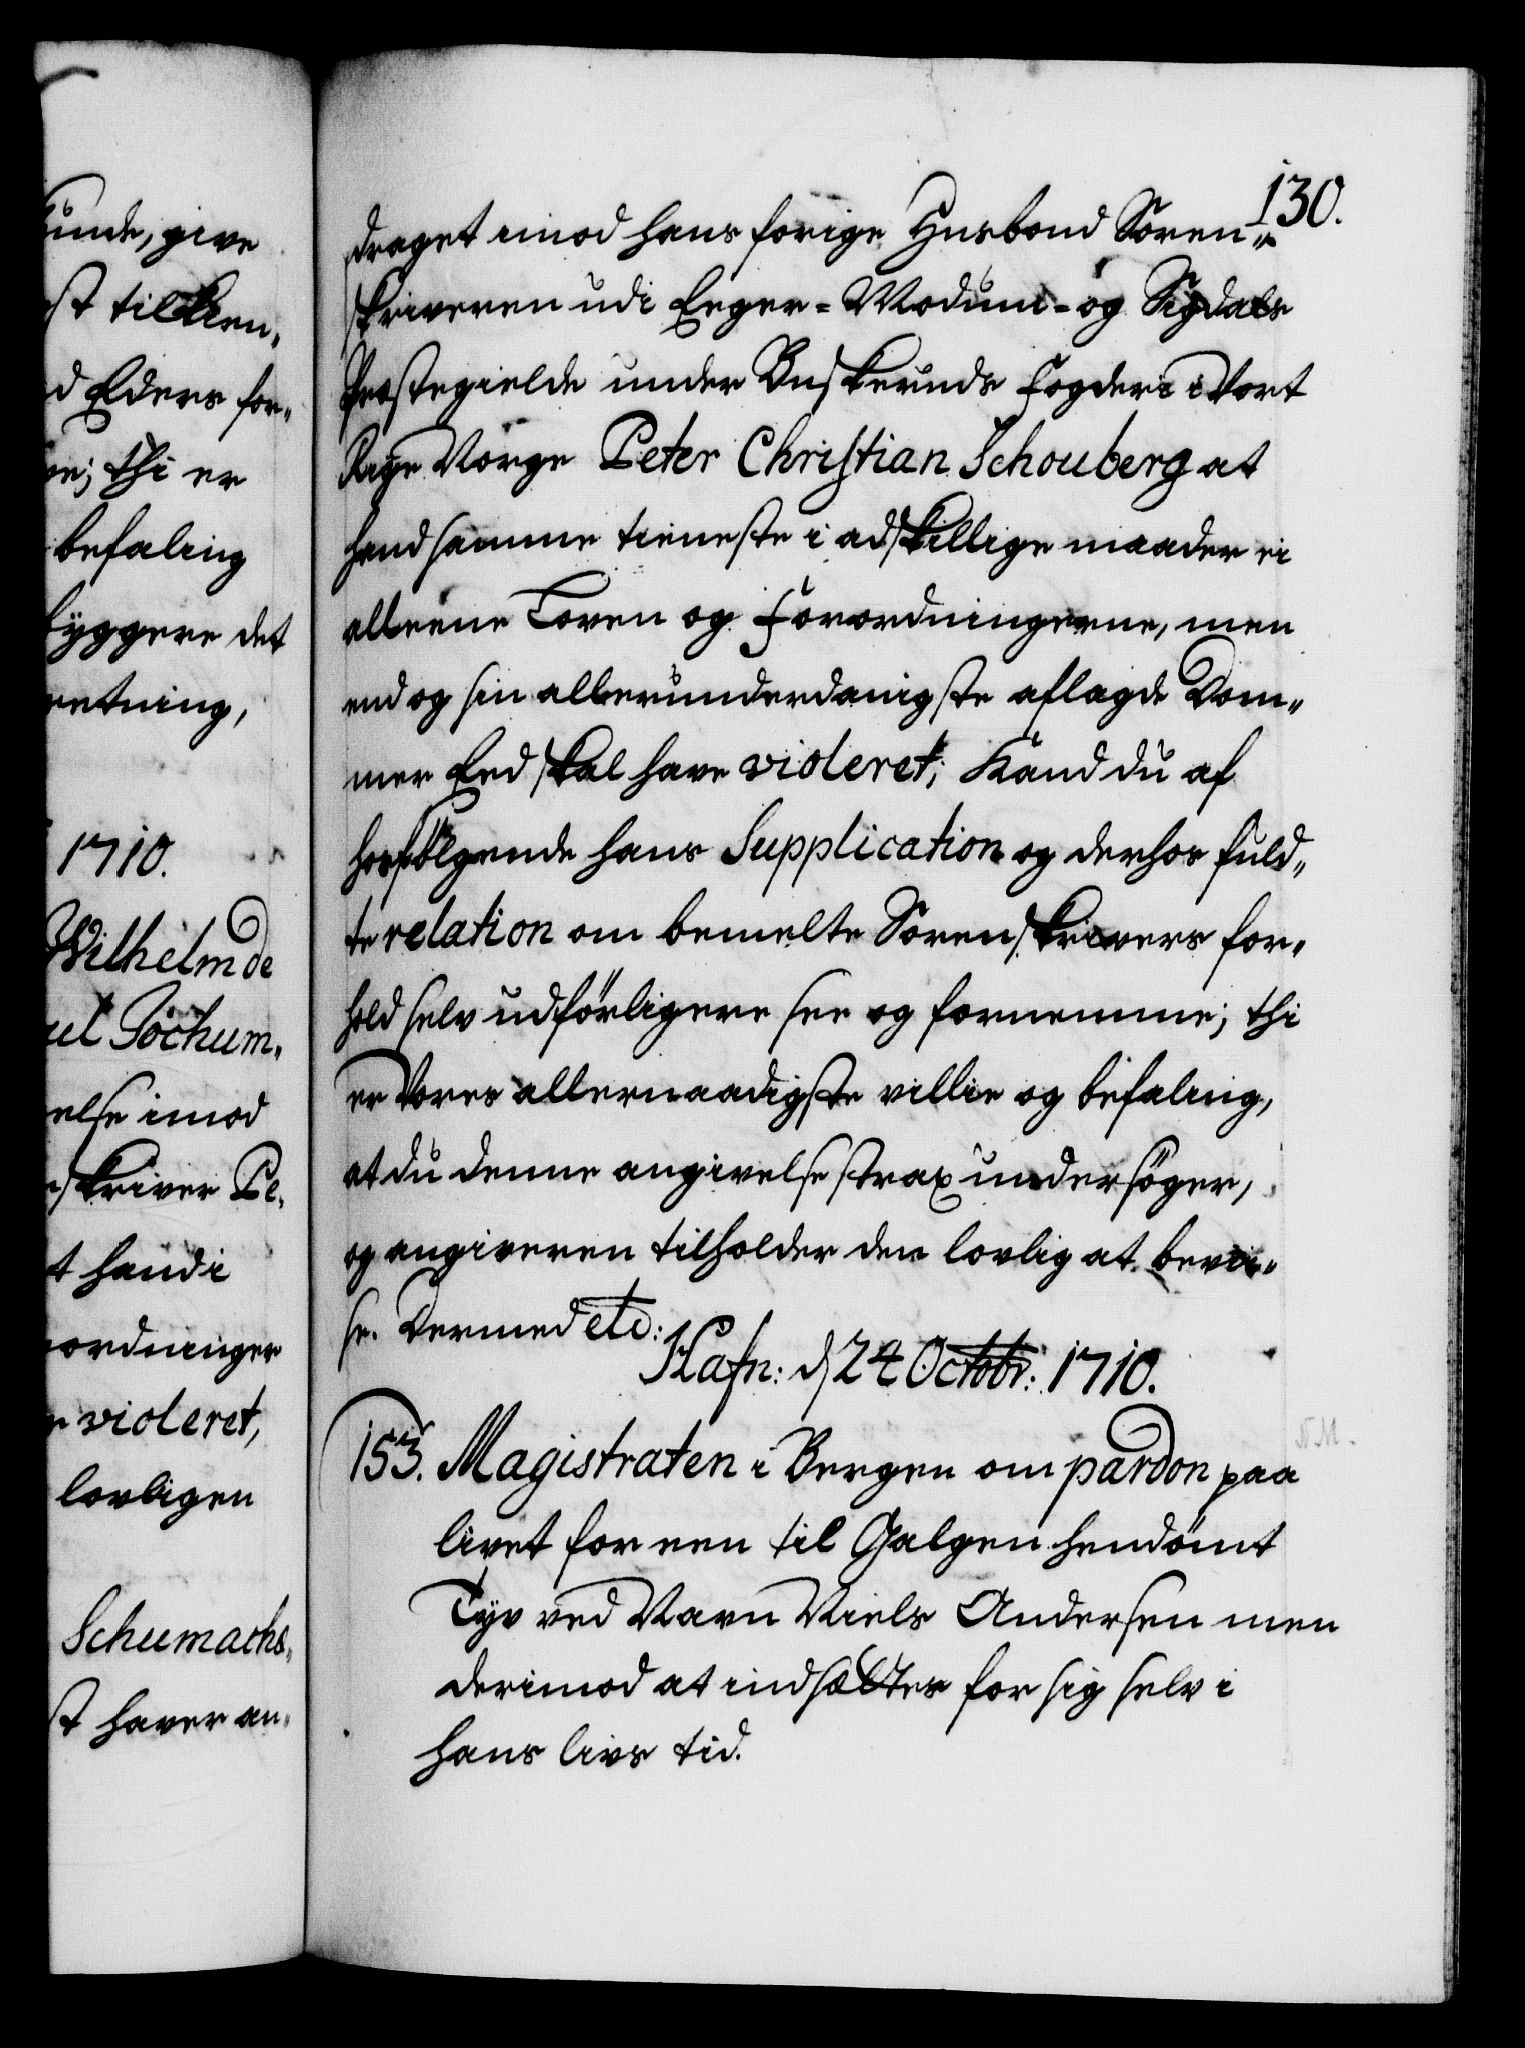 unde, give
st tilkien„
d Eders for„
ve; thi er
befaling
byggere det
retning,
1710.
Wilhelm de
uel Jochum„
else imod
nskriver Pe„
t hand i
ordninger
r violeret,
lovligen
Schumachs„
st haver an„
130.
draget imod hans forige Husbond Soren„
skriveren udi Eeger- Modum- og Sigdals
Præstegielde under Buskeruds Fogderi i Vort
Rige Norge Peter Christian Schouberg at
hand samme tieneste i adskillige maader ei
alleene Loven og Forordningerne, men
end og sin allerunderdanigste aflagde Dom„
mer Eed skal have violeret; Kand du af
hosfölgende hans Supplication og derhos fuld„
te relation om bemelte Sorenskrivers for„
hold selv udförligere see og fornemme; thi
er Vores allernaadigste villie og befaling,
at du denne angivelse strax undersöger,
og angiveren tilholder den lovlig at bevi„
se. Dermed etc:
Hafn: d 24 Octobr: 1710.
153. Magistraten i Bergen om pardon paa
N.M.
livet for een til Galgen hendömt
Tyv ved Navn Niels Andersen men
derimod at indsættes for sig selv i
hans livs tid.